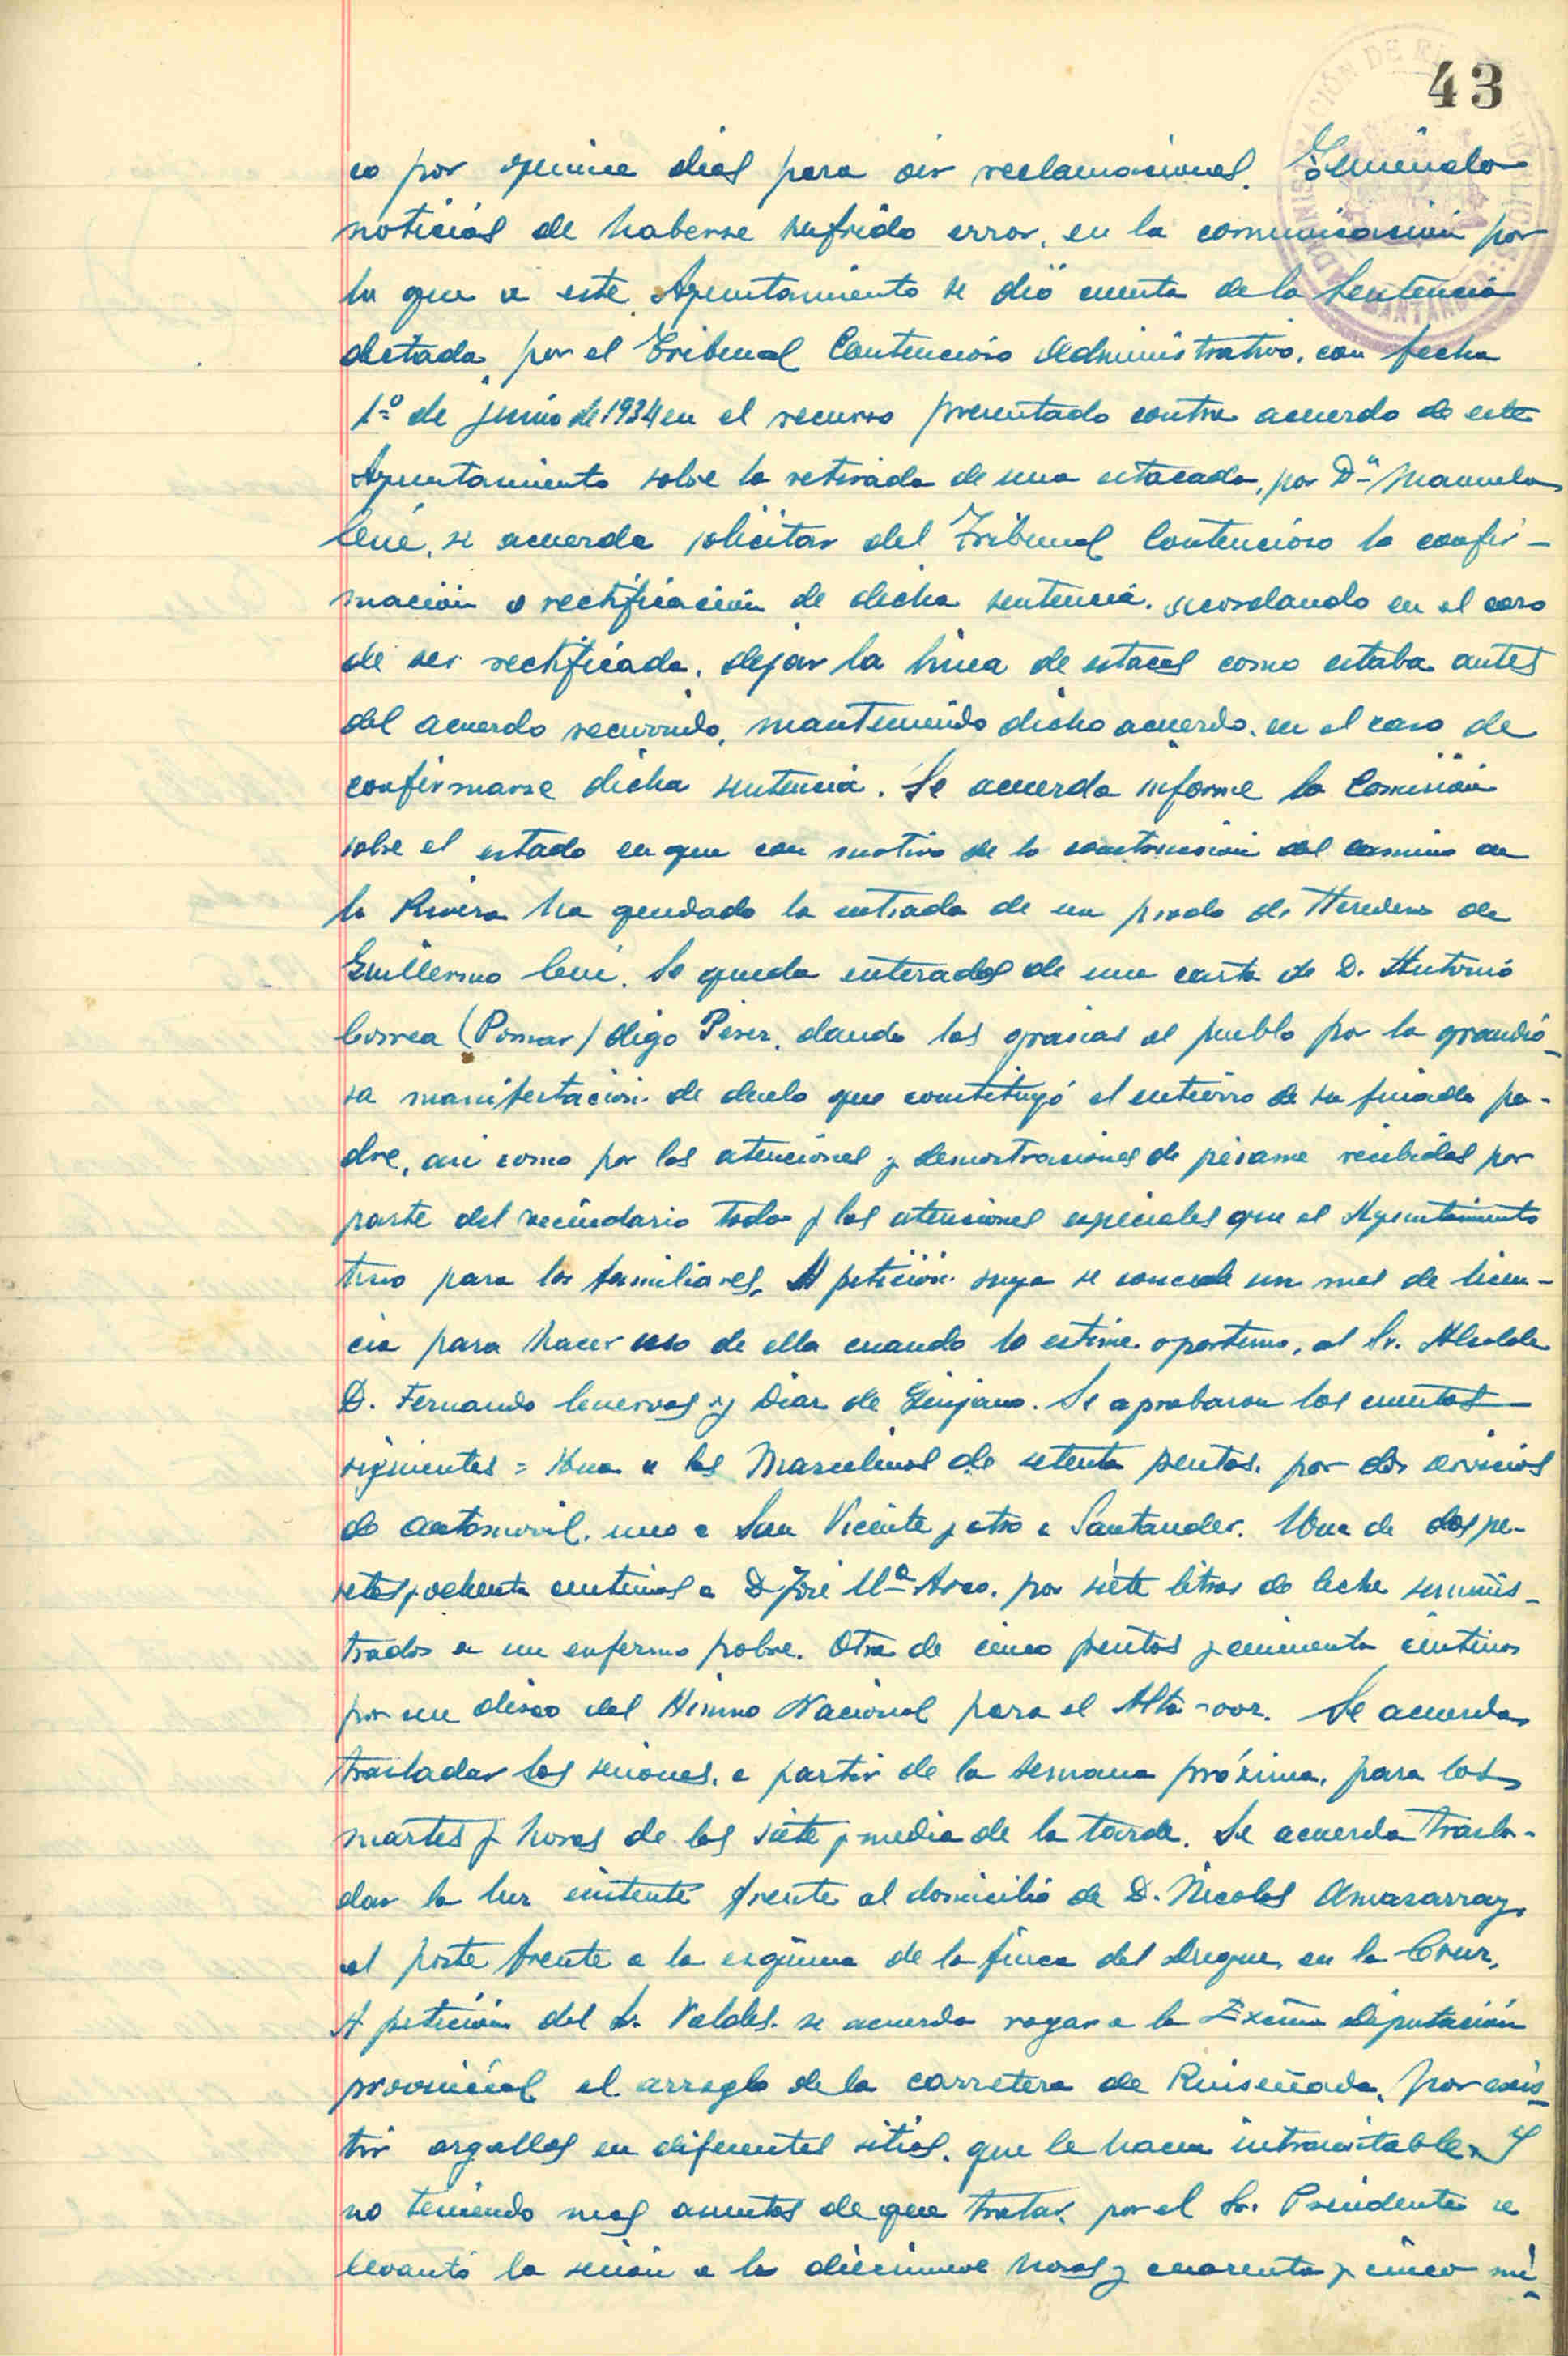 43
co por quince dias para oir reclamaciones. Teniendo
noticias de haberse sufrido error, en la comunicación por
la que a este Ayuntamiento se dió cuenta de la Sentencia
dictada, por el Tribunal Contencioso Administrativo, con fecha
1º de junio de 1934 en el recurso presentado contra acuerdo de este
Ayuntamiento sobre la retirada de una estacada, por Dª Manuela
se acuerda solicitar del Tribunal Contencioso la confir-
mación o rectificación de dicha sentencia, acordando en el caso
de ser rectificada, dejar la linea de estacas como estaba antes
del acuerdo recurrido, manteniendo dicho acuerdo, en el caso de
confirmarse dicha sentencia. Se acuerda informe la Comisión
sobre el estado en que con motivo de la construcción del camino de
la Rivera ha quedado la entrada de un prado de Herederos de
Guillermo Se queda enterados de una carta de D. Antonio
Correa (Pomar) digo Perez, dando las gracias al pueblo por la grandio-
sa manifestación de duelo que constituyó el entierro de su finado pa-
dre, asi como por las atenciones y demostraciones de pésame recibidas por
parte del vecindario todo y las atenciones especiales que el Ayuntamiento
tuvo para los familiares. A petición suya se concede un mes de licen-
cia para hacer uso de ella cuando lo estime oportuno, al Sr. Alcalde
D. Fernando Cuervas y Diaz de Quijano. Se aprobaron las cuentas
siguientes = Una a los Marcelinos de setenta pesetas, por dos servicios
de automovil, uno a San Vicente y otro a Santander. Una de dos pe-
setas y ochenta centimos a D José Mª Arco, por siete litros de leche suminis-
trados a un enfermo pobre. Otra de cinco pesetas y cincuenta céntimos
por un disco del Himno Nacional para el Alta-voz. Se acuerda
trasladar las sesiones, a partir de la semana próxima, para los
martes y horas de las siete y media de la tarde. Se acuerda trasla-
dar la luz existente frente al domicilio de D. Nicolas Amasarray,
al poste frente a la esquina de la finca del Duque, en la Cruz,
A petición del Sr. Valdes, se acuerda rogar a la Excma Diputación
provincial el arreglo de la carretera de Ruiseñada, por exis-
tir argallos en diferentes sitios, que la hacen intransitable. Y
no teniendo mas asuntos de que tratar, por el Sr. Presidente se
levantó la sesión a las diecinueve horas y cuarenta y cinco mi-